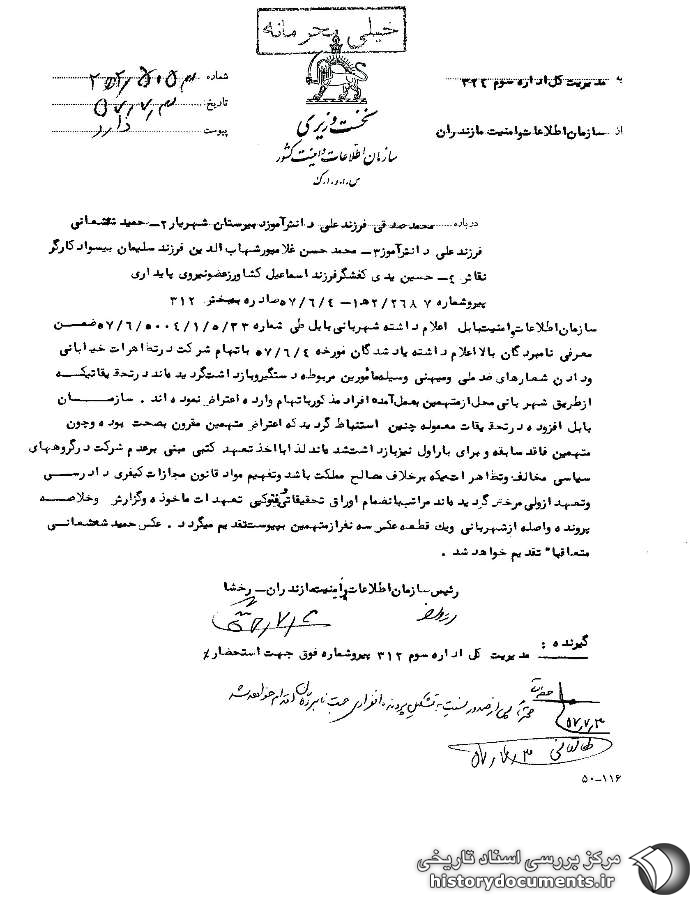 خیلی محرمانه
به مدیریت کل اداره سوم ۳۲۲
شماره
از سازمان اطلاعات وامنیت مازندران
تاریخ
پیوست دارد
نخست وزیری
سازمان اطلاعات و امنیت کشور
س.ا.و.ا.ک
درباره محمد صدقی فرزند علی دانش‌آموزد بیرستان شهریار ۲ـ حمید شعشعانی
فرزند علی دانش‌آموز ۳ـ محمد حسن غلامپورشهاب الدین فرزند سلیمان بیسواد کارگر
نقاش ۴ـ حسین یدی کفشگرفرزند اسماعیل کشاورزعضونیروی پایداری
پیروشماره ۲/۲۶۸۷ه‍۱ـ ۵۷/۶/۴صادره ببخش ۳۱۲
سازمان اطلاعات وامنیت بابل اعلام داشته شهربانی بابل طی شماره ۵۷/۶/۵۰۰۴/۱/۵/۳۳ ضمن
معرفی نامبردگان بالااعلام داشته یادشدگان مورخه ۵۷/۶/۴ باتهام شرکت درتظاهرات خیابانی
ودادن شعارهای ضد ملی ومیهنی وسیله مامورین مربوطه دستگیروبازداشت گردیده‌اند درتحقیقاتیکه
ازطریق شهربانی محل ازمتهمین بعمل آمده افراد مذکورباتهام وارده اعتراض نموده اند . سازمان
بابل افزوده درتحقیقات معموله چنین استنباط گردید که اعتراض متهمین مقرون بصحت بوده وچون
متهمین فاقد سابقه و برای باراول نیزبازداشت شده‌اند لذا بااخذ تعهد کتبی مبنی برعدم شرکت درگروههای
سیاسی مخالف وتظاهراتیکه برخلاف مصالح مملکت باشد وتفهیم مواد قانون مجازات کیفری دادرسی
وتعهد ازولی مرخص گردیده‌اند مراتب بانضمام اوراق تحقیقاتی وفتوکپی تعهدات ماخوذه وگزارش وخلاصه
پرونده واصله ازشهربانی ویک قطعه عکس سه نفرازمتهمین بپیوست تقدیم میگردد . عکس حمید شعشعانی
متعاقبا" تقدیم خواهد شد .
رئیس سازمان اطلاعات وامنیت مازندران ـ رخشا
گیرنده :
مدیریت کل اداره سوم ۳۱۲ پیروشماره فوق جهت استحضار٪
۵۷،۷،۳
طالقانی
۵۰-۱۱۶
مرکز بررسی اسناد تاریخی
historydocuments.ir